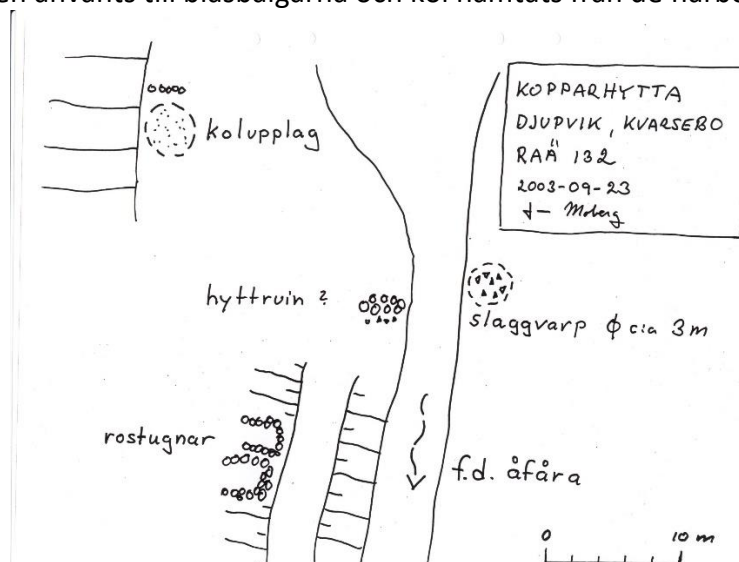 använts till blåsbälgarna och kol hämtats från de närbe
KOPPARHYTTA
DJUPVIK, KVARSEBO
RAÄ 132
2003-09-23
Moberg
kolupplag
hyttruin ?
slaggvarp ϕ cia 3 m
rostugnar
f.d. åfåra
0 10 m